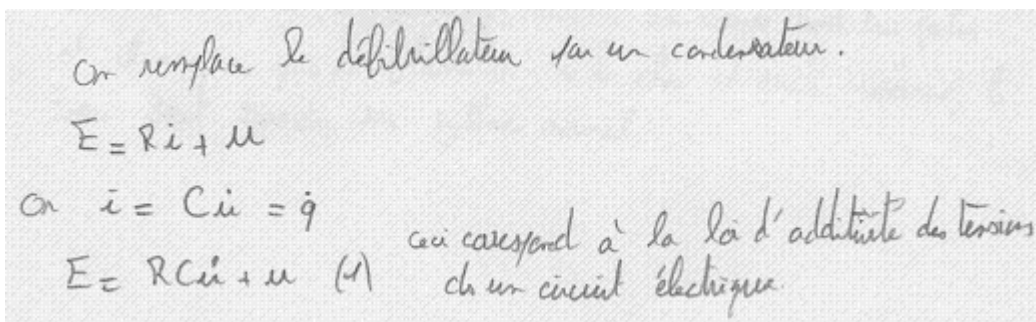 On remplace le défibrillateur par un condensateur.
E = Ri + u
On i = Cu̇ = q̇
E = RCu̇ + u (1) ceci correspond à la loi d'additivité des tensions
ds un circuit électrique.